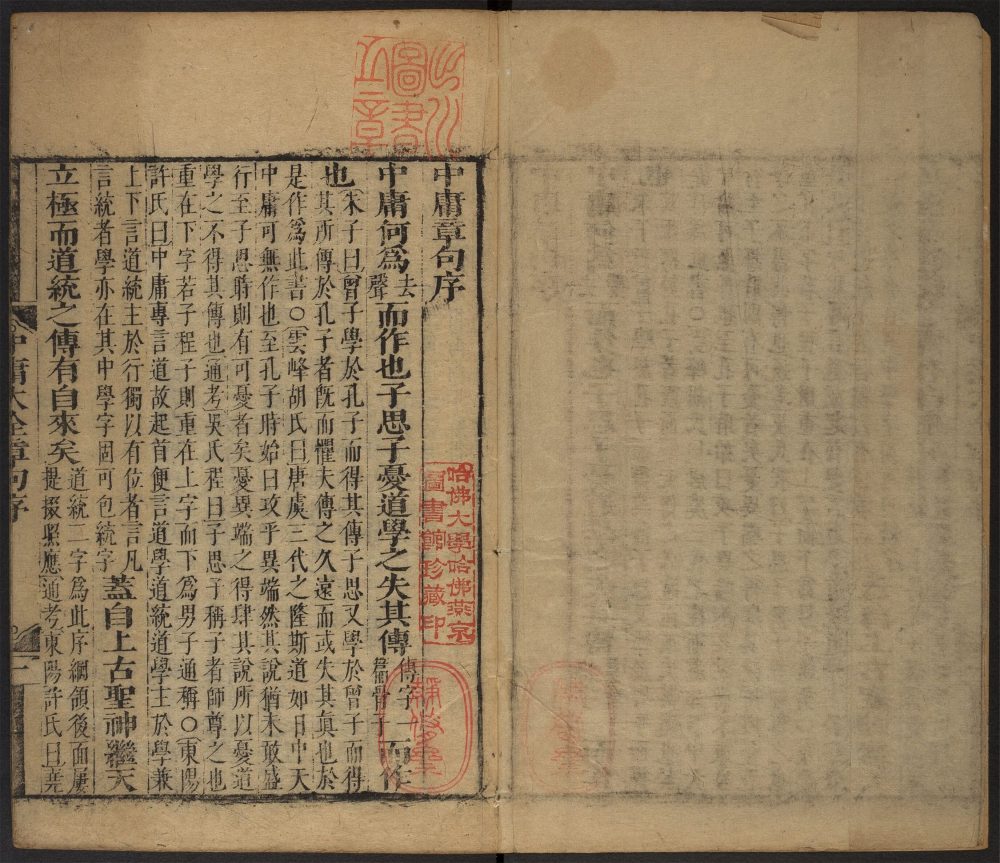 中庸章句序
中庸何爲去聲而作也子思子憂道學之失其傳傳字一篇骨子而作
也朱子曰曾子學於孔子而得其傳子思又學於曾子而得
其所傳於孔子者既而懼夫傳之久遠而或失其眞也於
是作爲此書○雲峰胡氏曰唐虞三代之隆斯道如日中天
中庸可無作也至孔子時始曰攻乎異端然其說猶未敢盛
行至子思時則有可憂者矣憂異端之得肆其說所以憂道
學之不得其傳也通考吳氏程曰子思子稱子者師尊之也
重在下字若子程子則重在上字而下爲男子通稱○東陽
許氏曰中庸專言道故起首便言道學道統道學主於學兼
上下言道統主於行獨以有位者言凡
言統者學亦在其中學字固可包統字蓋自上古聖神繼天
立極而道統之傳有自來矣道統二字爲此序綱領後面屢
提掇照應通考東陽許氏曰堯
中庸大全章句序
一
圖書
章
哈佛大學哈佛燕京
圖書館珍藏印